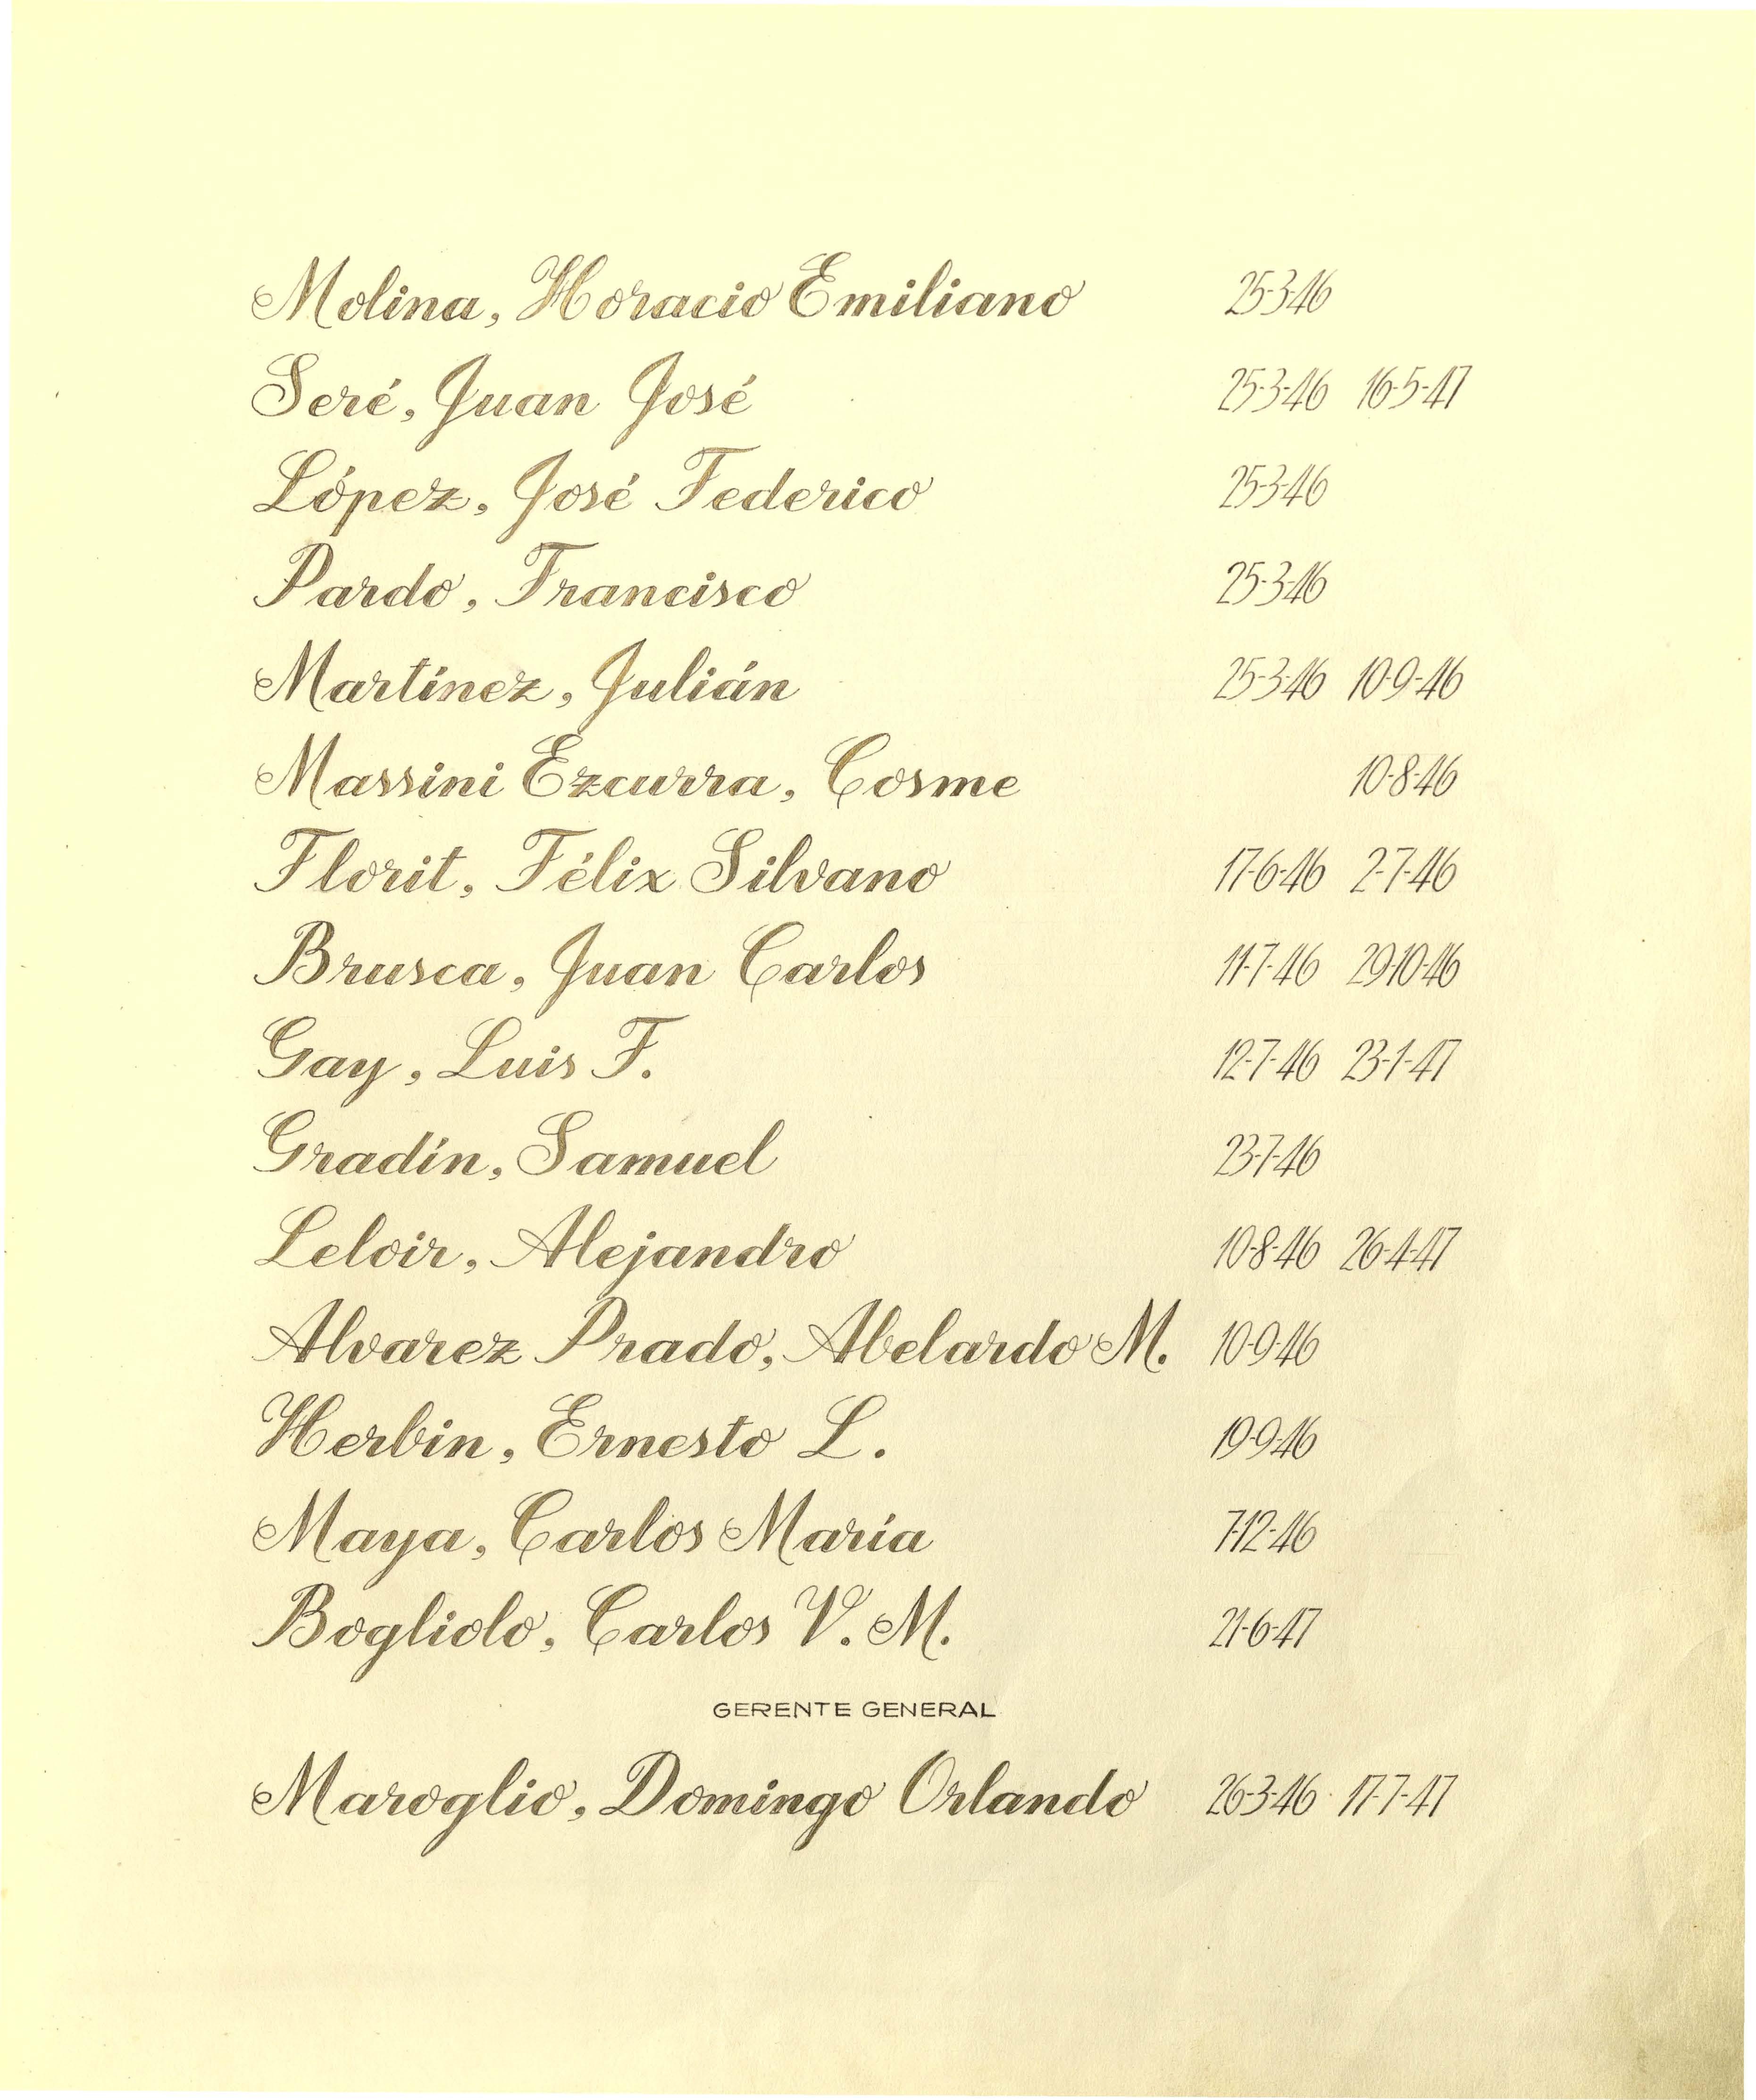 Molina, Horacio Emiliano 25-3-46
Seré, Juan José 25-3-46 16-5-47
López, José Federico 25-3-46
Pardo, Francisco 25-3-46
Martínez, Julián 25-3-46 10-9-46
Massini Ezcurra, Cosme 10-8-46
Florit, Félix Silvano 17-6-46 2-7-46
Brusca, Juan Carlos 11-7-46 29-10-46
Gay, Luis F. 12-7-46 23-1-47
Gradín, Samuel 23-7-46
Leloir, Alejandro 10-8-46 26-4-47
Alvarez Prado, Abelardo M. 10-9-46
Herbin, Ernesto L. 19-9-46
Maya, Carlos María 7-12-46
Bogliolo, Carlos V. M. 21-6-47
GERENTE GENERAL
Maroglio, Domingo Orlando 26-3-46 17-7-47